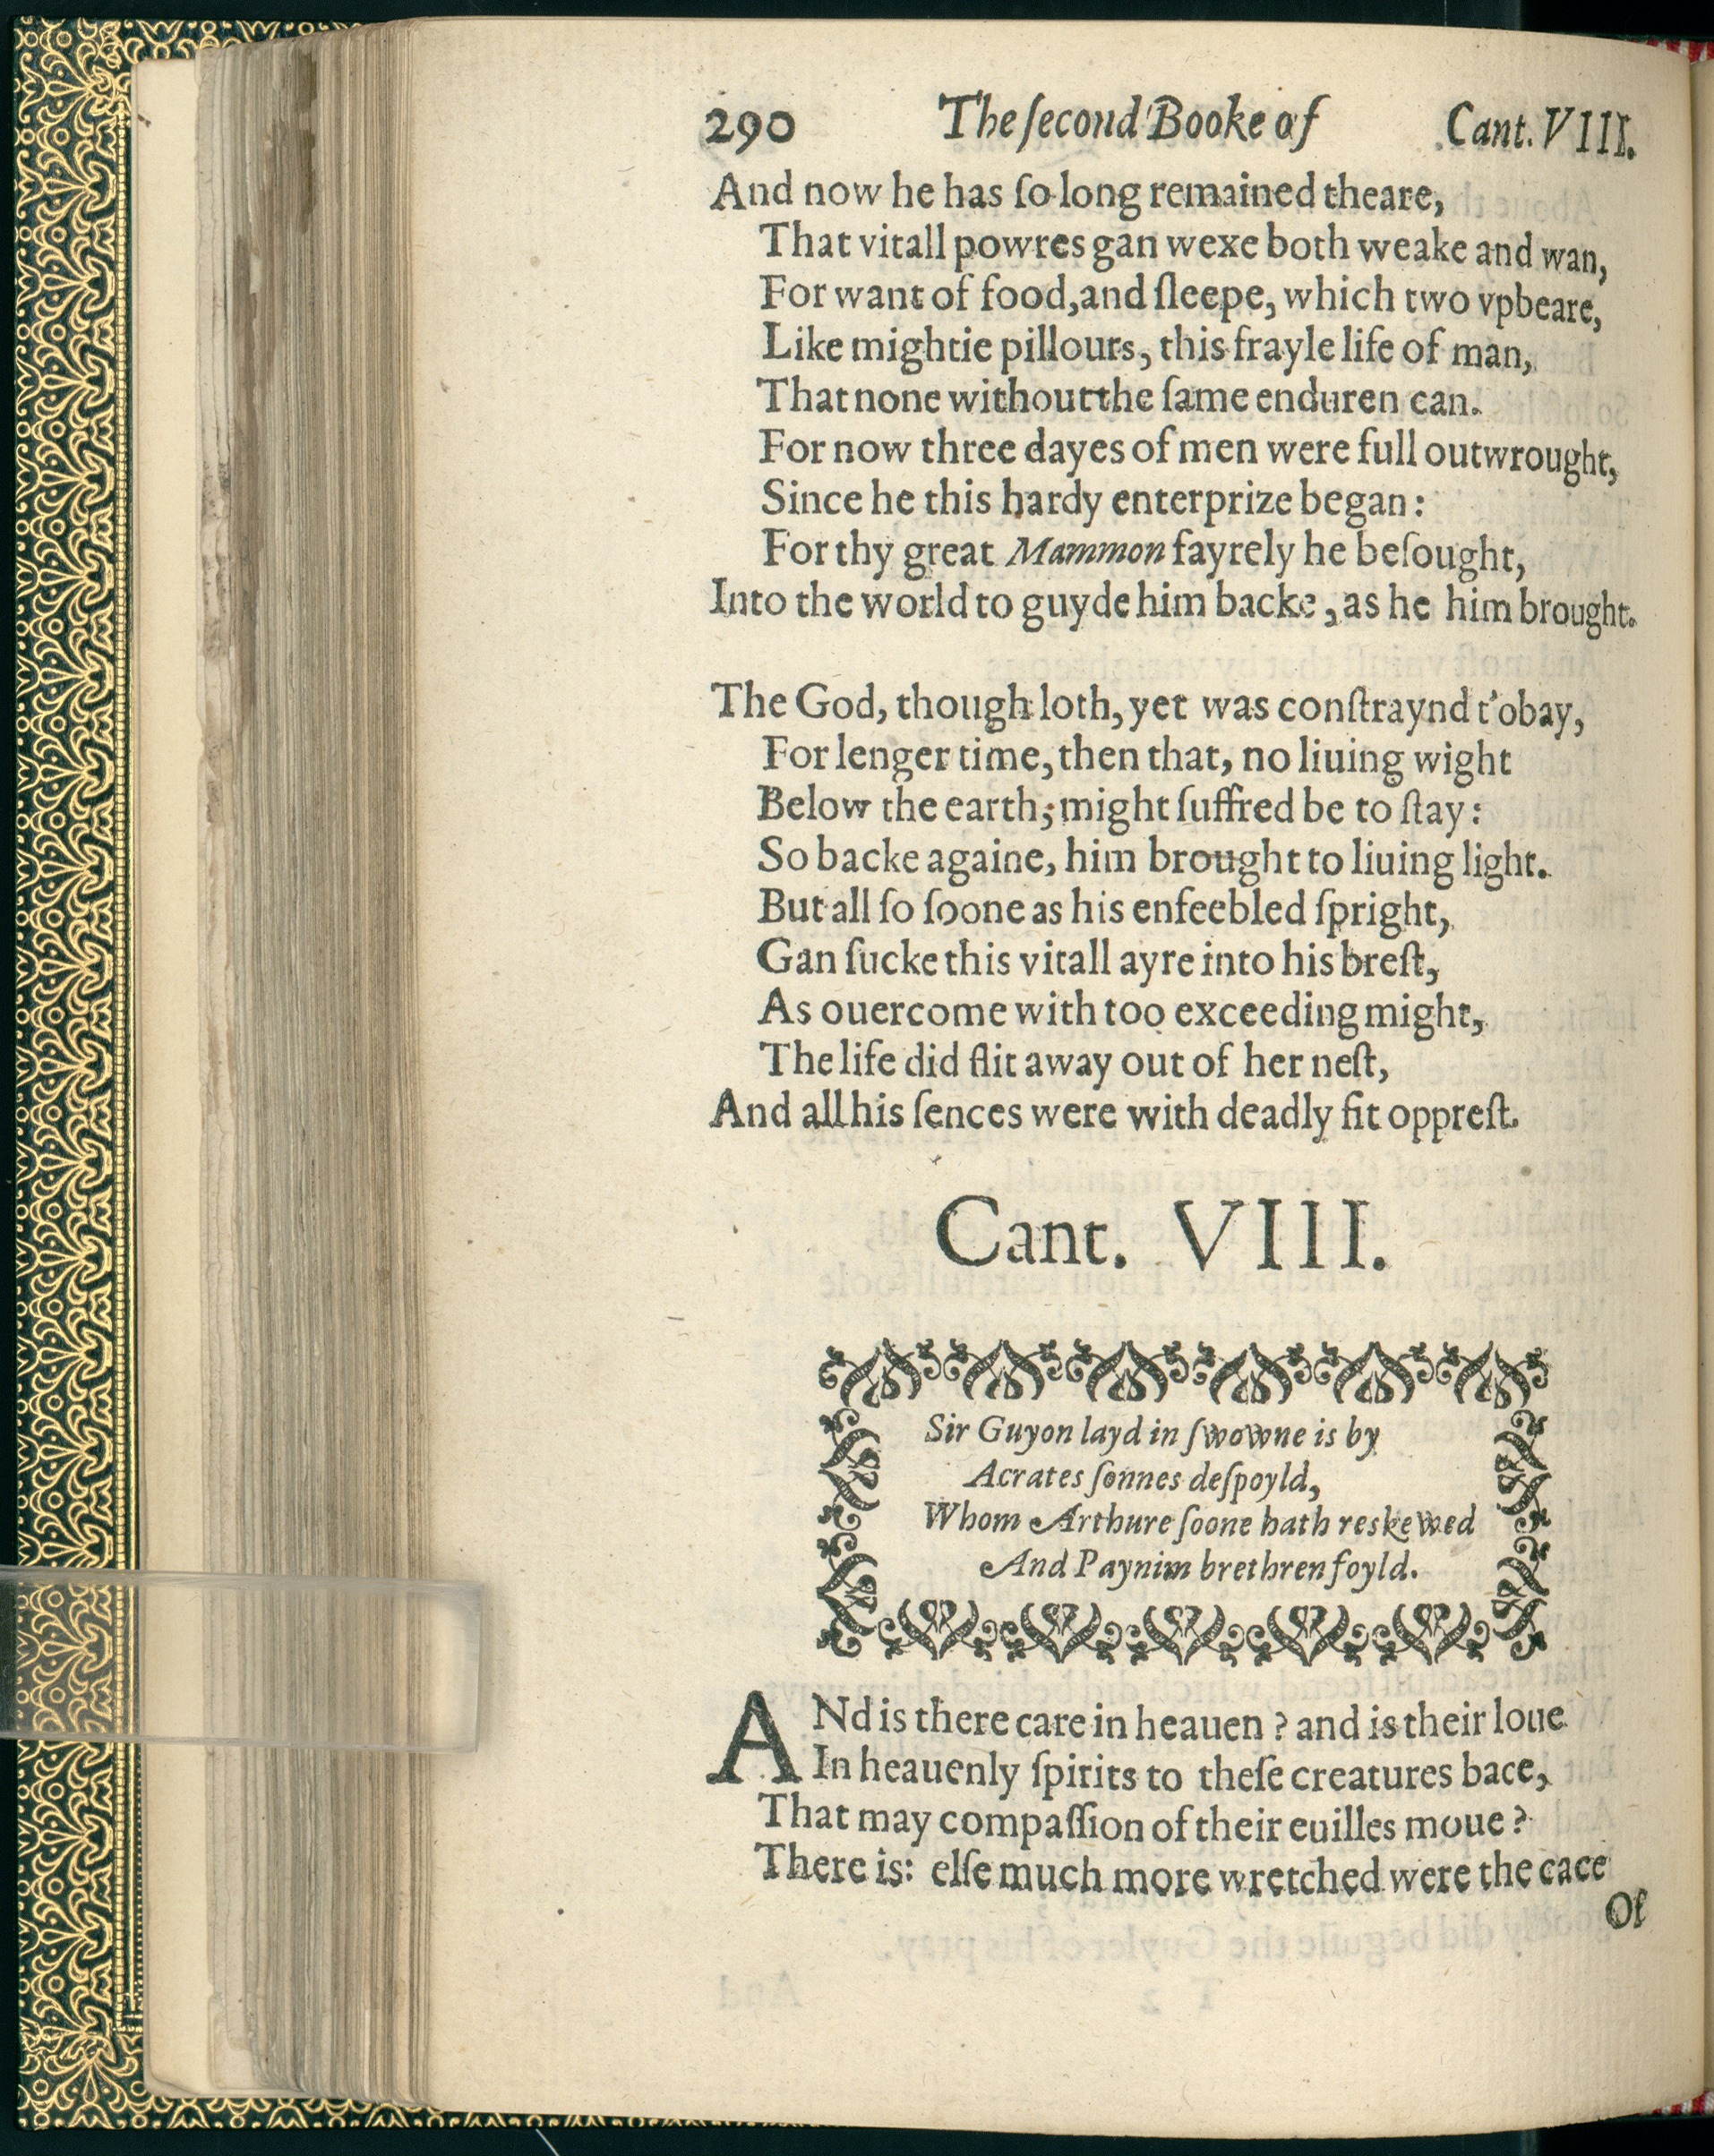 290 The ſecond Booke of Cant. VIII.
And now he has ſo long remained theare,
That vitall powres gan wexe both weake and wan,
For want of food, and ſleepe, which two vpbeare,
Like mightie pillours, this frayle life of man,
That none without the ſame enduren can.
For now three dayes of men were full outwrought,
Since he this hardy enterprize began:
For thy great Mammon fayrely he beſought,
Into the world to guyde him backe, as he him brought.
The God, though loth, yet was conſtraynd t'obay,
For lenger time, then that, no liuing wight
Below the earth; might ſuffred be to ſtay:
So backe againe, him brought to liuing light.
But all ſo ſoone as his enfeebled ſpright,
Gan ſucke this vitall ayre into his breſt,
As ouercome with too exceeding might,
The life did flit away out of her neſt,
And all his ſences were with deadly fit oppreſt.
Cant. VIII.
Sir Guyon layd in ſwowne is by
Acrates ſonnes deſpoyld,
Whom Arthure ſoone hath reskewed
And Paynim brethren foyld.
ANd is there care in heauen? and is their loue
In heauenly ſpirits to theſe creatures bace,
That may compaſſion of their euilles moue?
There is: elſe much more wretched were the cace
Of